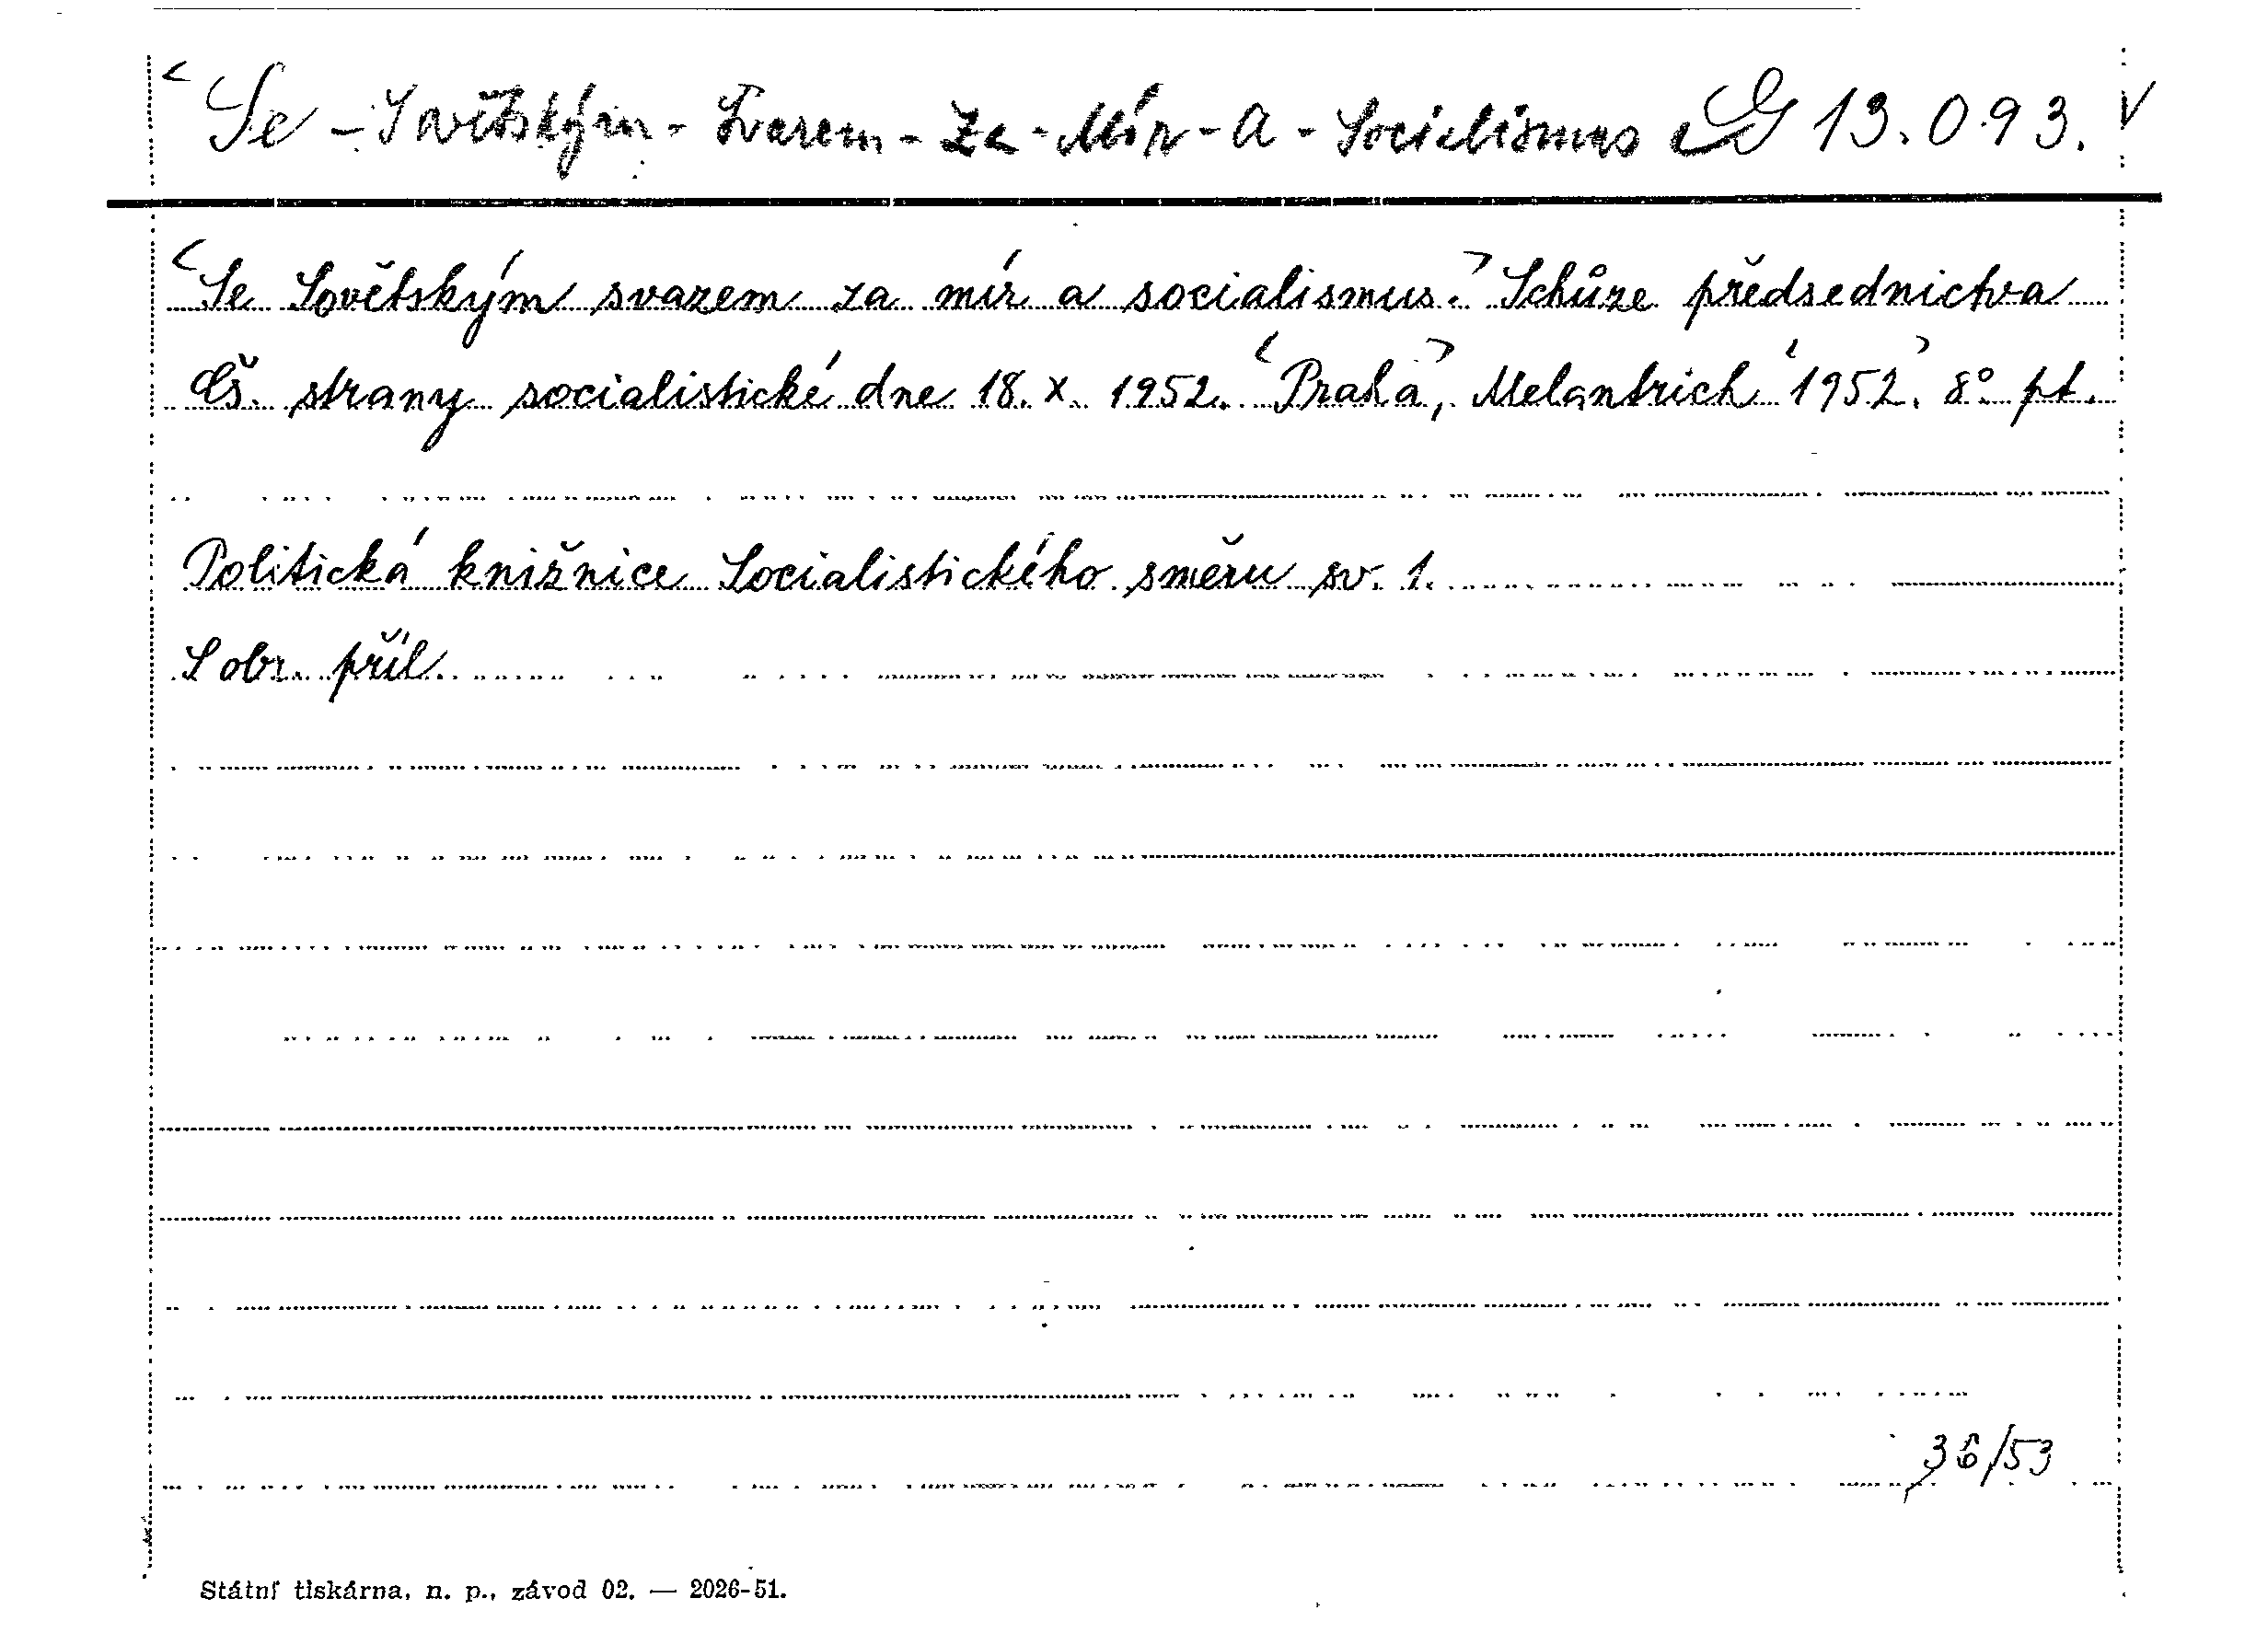 <Se - Sovětským - Svazem - Za - Mír - A - Socialismus G 13.093. V
<Se Sovětským svazem za mír a socialismus.> Schůze předsednictva
Čs. strany socialistické dne 18. X. 1952. <Praha>, Melantrich <1952.> 8° pt.
Politická knižnice Socialistického směru sv. 1.
S obr. příl.
36/53
Státní tiskárna, n. p., závod 02. — 2026-51.